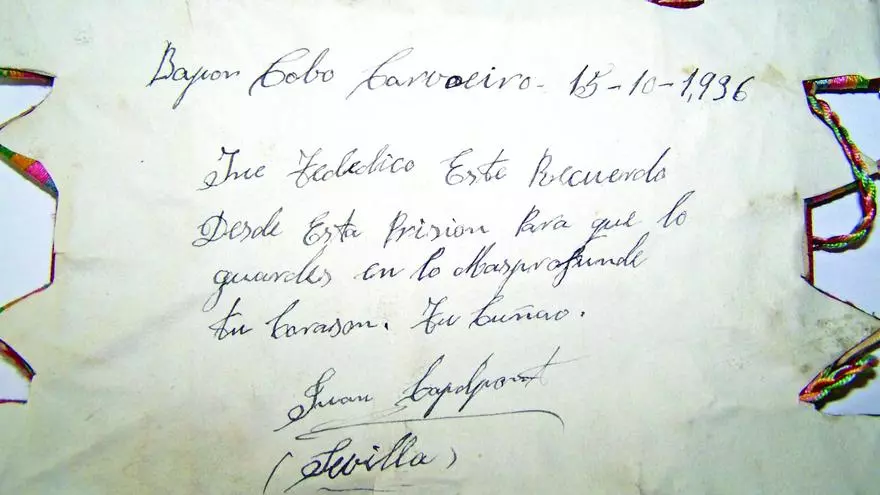 Bapor Cobo Carvoeiro - 15-10-1,936
Tue Tededico Este Recuerdo
Desde Esta Prision Para que lo
guardes en lo Masprofunde
tu Corason. Tu Cuñao.
Juan Capdpont
(Sevilla)